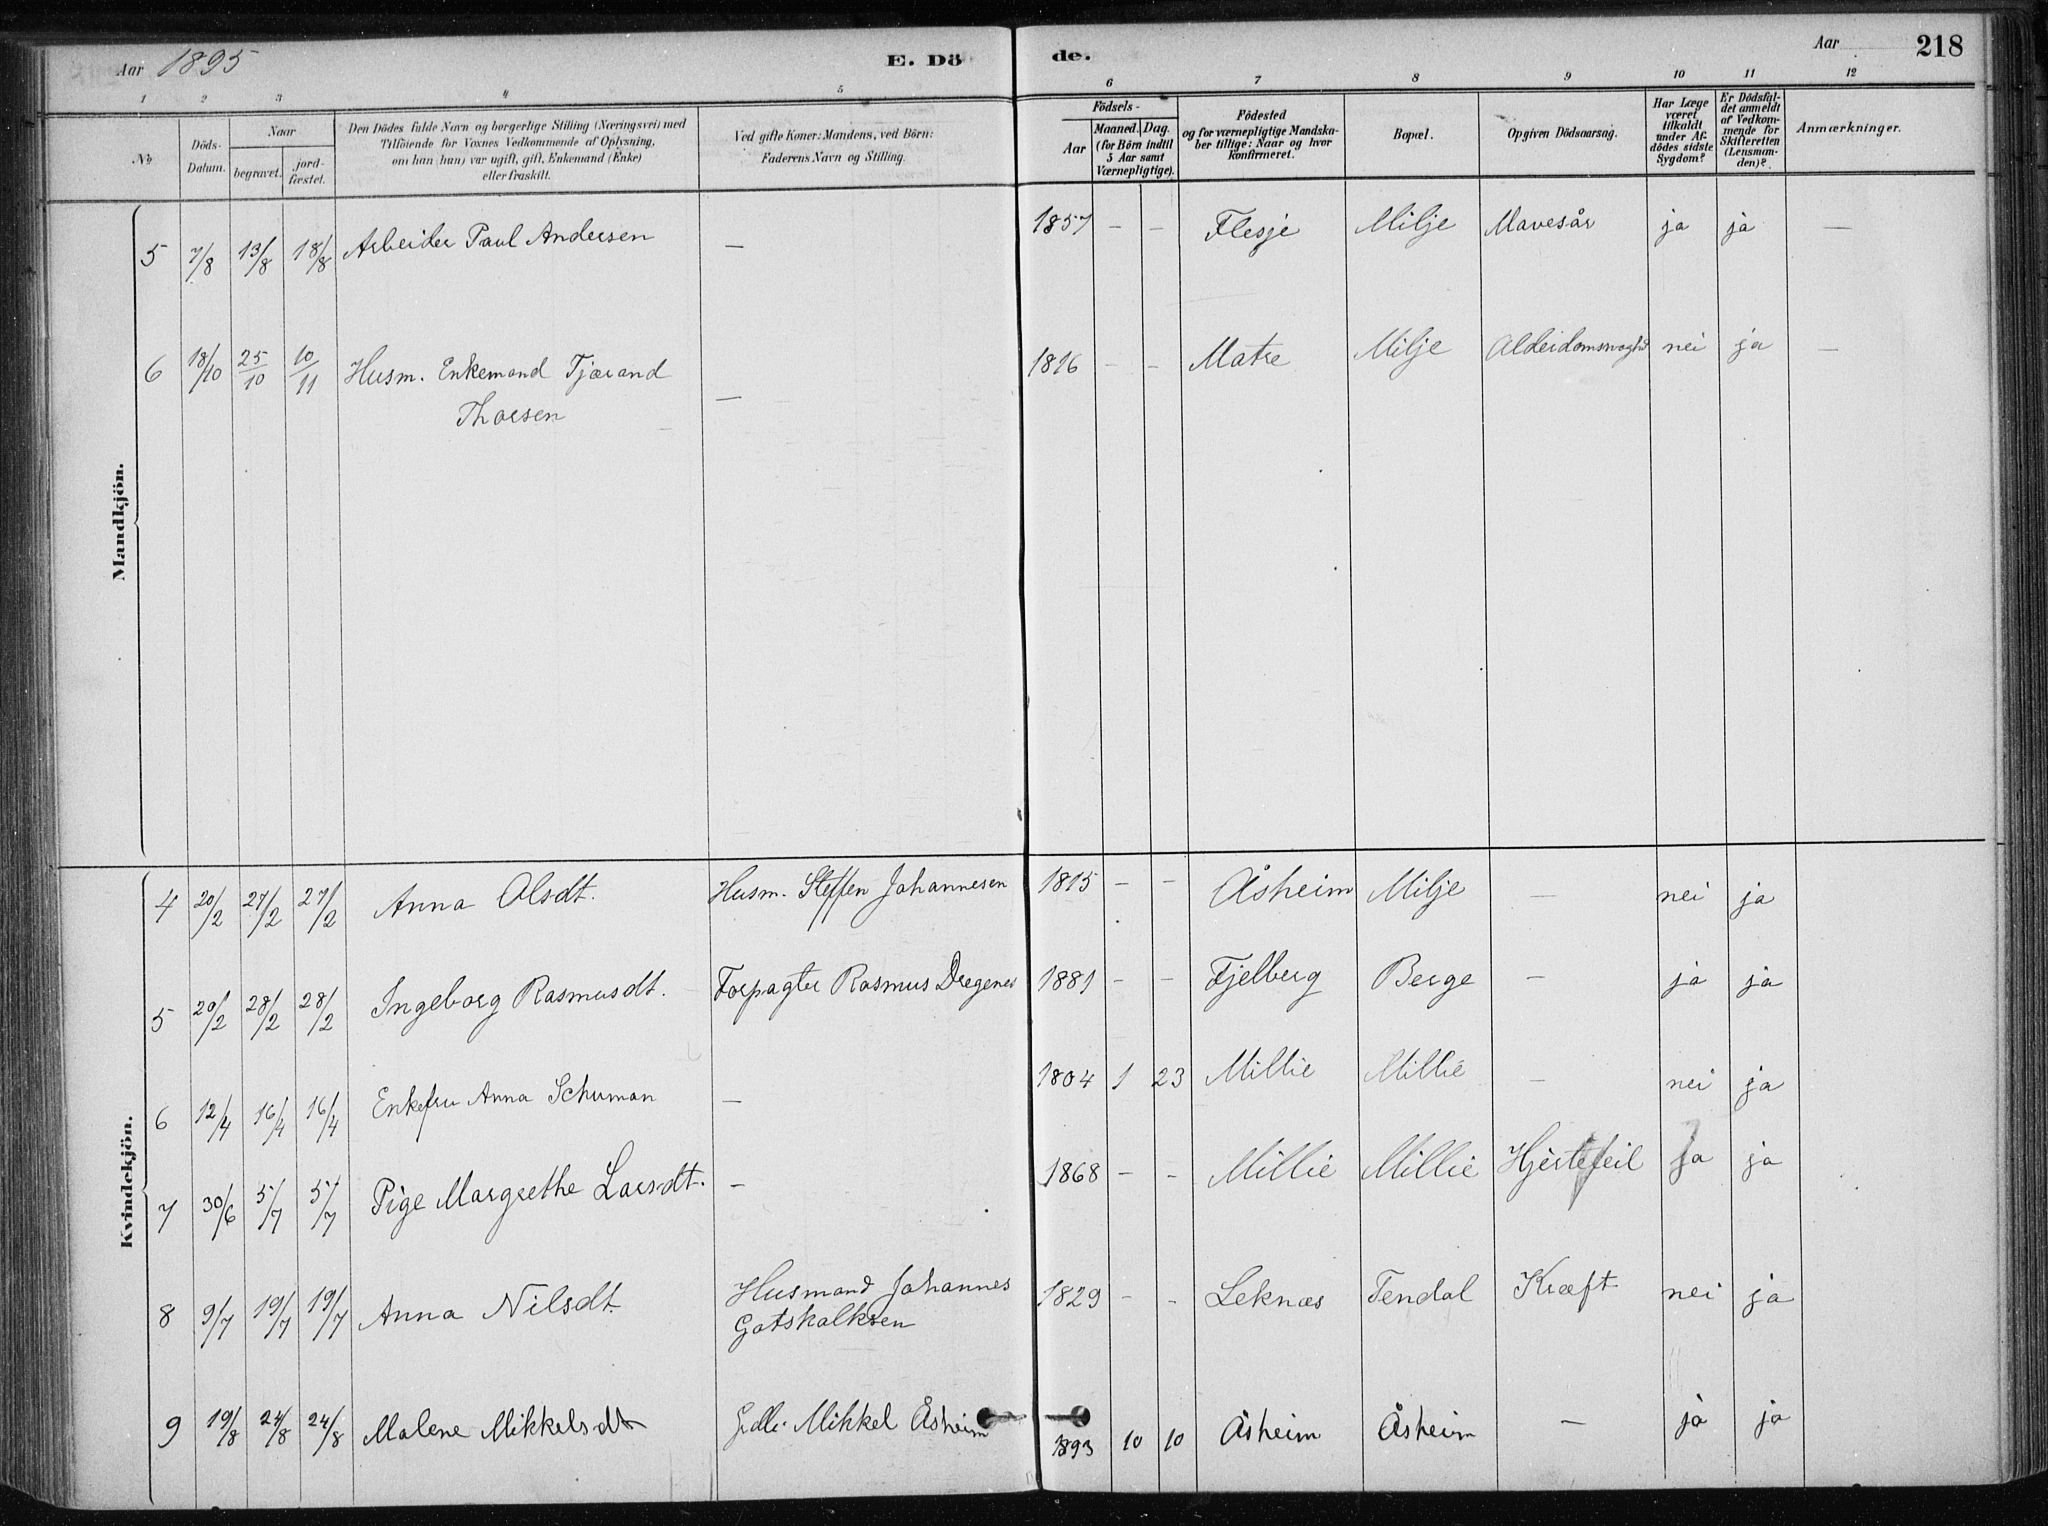 Aar 1895 E. Döde. Aar 218
1 2 3 4 5 6 7 8 9 10 11 12
No
Döds-Datum.
Naar
begravet.
jord-fæstet.
Den Dödes fulde Navn og borgerlige Stilling (Næringsvei) med
Tilföiende for Voxnes Vedkommende af Oplysning,
om han (hun) var ugift, gift, Enkemand (Enke)
eller fraskilt.
Ved gifte Koner: Mandens, ved Börn:
Faderens Navn og Stilling.
Födsels-
Aar
Maaned. Dag.
(for Börn indtil
5 Aar samt
Værnepligtige).
Födested
og for værnepligtige Mandska-
ber tillige: Naar og hvor
konfirmeret.
Bopæl.
Opgiven Dödsaarsag.
Har Læge
været
tilkaldt
under Af-
dödes sidste
Sygdom?
Er Dödsfal-
det anmeldt
af Vedkom-
mende for
Skifteretten
(Lensman-
den)?
Anmærkninger.
Mandkjön.
5 7/8 13/8 18/8 Arbeider Paul Andersen — 1857 - - Flesje Milje Mavesår ja ja —
6 18/10 25/10 10/11 Husm. Enkemand Tjærand — 1816 - - Matre Milje nei ja —
Thorsen
Kvindekjön.
4 20/2 27/2 27/2 Anna Olsdt. Husm. Steffen Johannesen 1815 - - Åsheim Milje — nei ja
5 20/2 28/2 28/2 Ingeborg Rasmusdt. Forpagter Rasmus Dregenes 1881 - - Fjelberg Berge — ja ja
6 12/4 16/4 16/4 Enkefru Anna Schuman — 1804 1 23 Millie Millie — nei ja
7 30/6 5/7 5/7 Pige Margrethe Larsdt. — 1868 - - Millie Millie Hjertefeil ja ja
8 9/7 19/7 19/7 Anna Nilsdt. Husmand Johannes 1829 - - Leknæs Tendal Kræft nei ja
Gotskalksen
9 19/8 24/8 24/8 Malene Mikkelsdt Mikkel Åsheim 1893 10 10 Åsheim Åsheim — ja ja